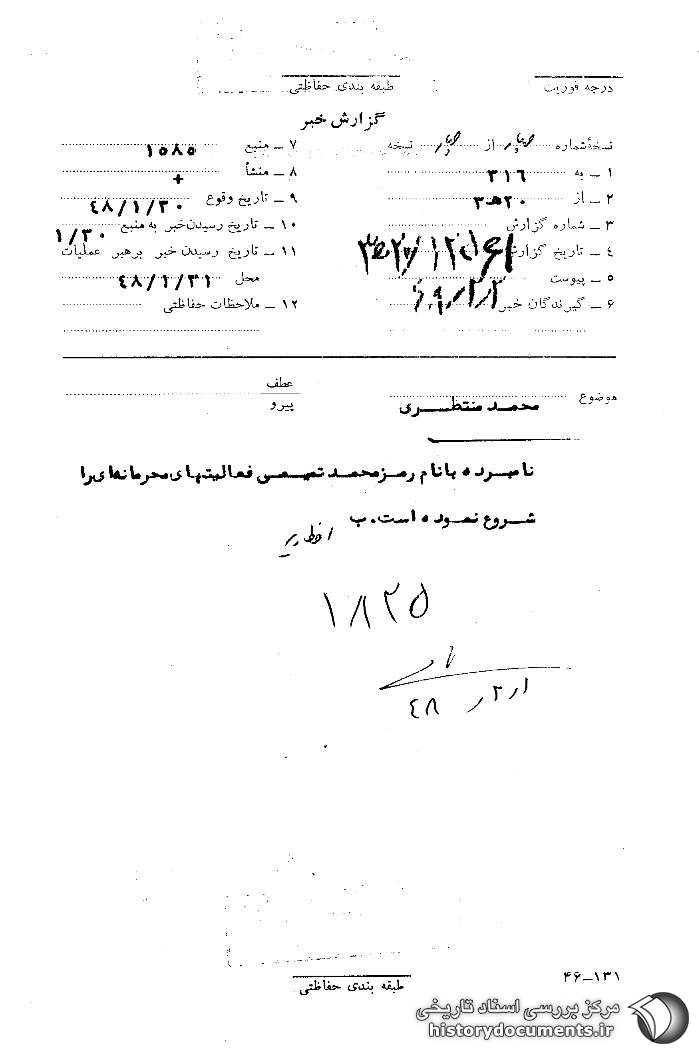 درجه فوریت
طبقه بندی حفاظتی
گزارش خبر
نسخهٔ شماره چهار از چهار نسخه
۱ – به ۳۱۶
۲ – از ۲۰ه۳
۳ – شماره گزارش
۴ – تاریخ گزارش
۵ – پیوست
۶ – گیرندگان خبر
۷ – منبع ۱۵۸۵
۸ – منشأ +
۹ – تاریخ وقوع ۴۸/۱/۳۰
۱۰ – تاریخ رسیدن خبر به منبع ۱/۳۰
۱۱ – تاریخ رسیدن خبر برهبر عملیات
محل ۴۸/۱/۳۱
۱۲ – ملاحظات حفاظتی
موضوع محمد منتظری
عطف
پیرو
نامبرده با نام رمز محمد سمیعی فعالیتهای محرمانه‌ای را
شروع نموده است. ب
۱۸۲۵
۴۸/۲/۱
طبقه بندی حفاظتی
۱۳۱–۴۶
مرکز بررسی اسناد تاریخی
historydocuments.ir